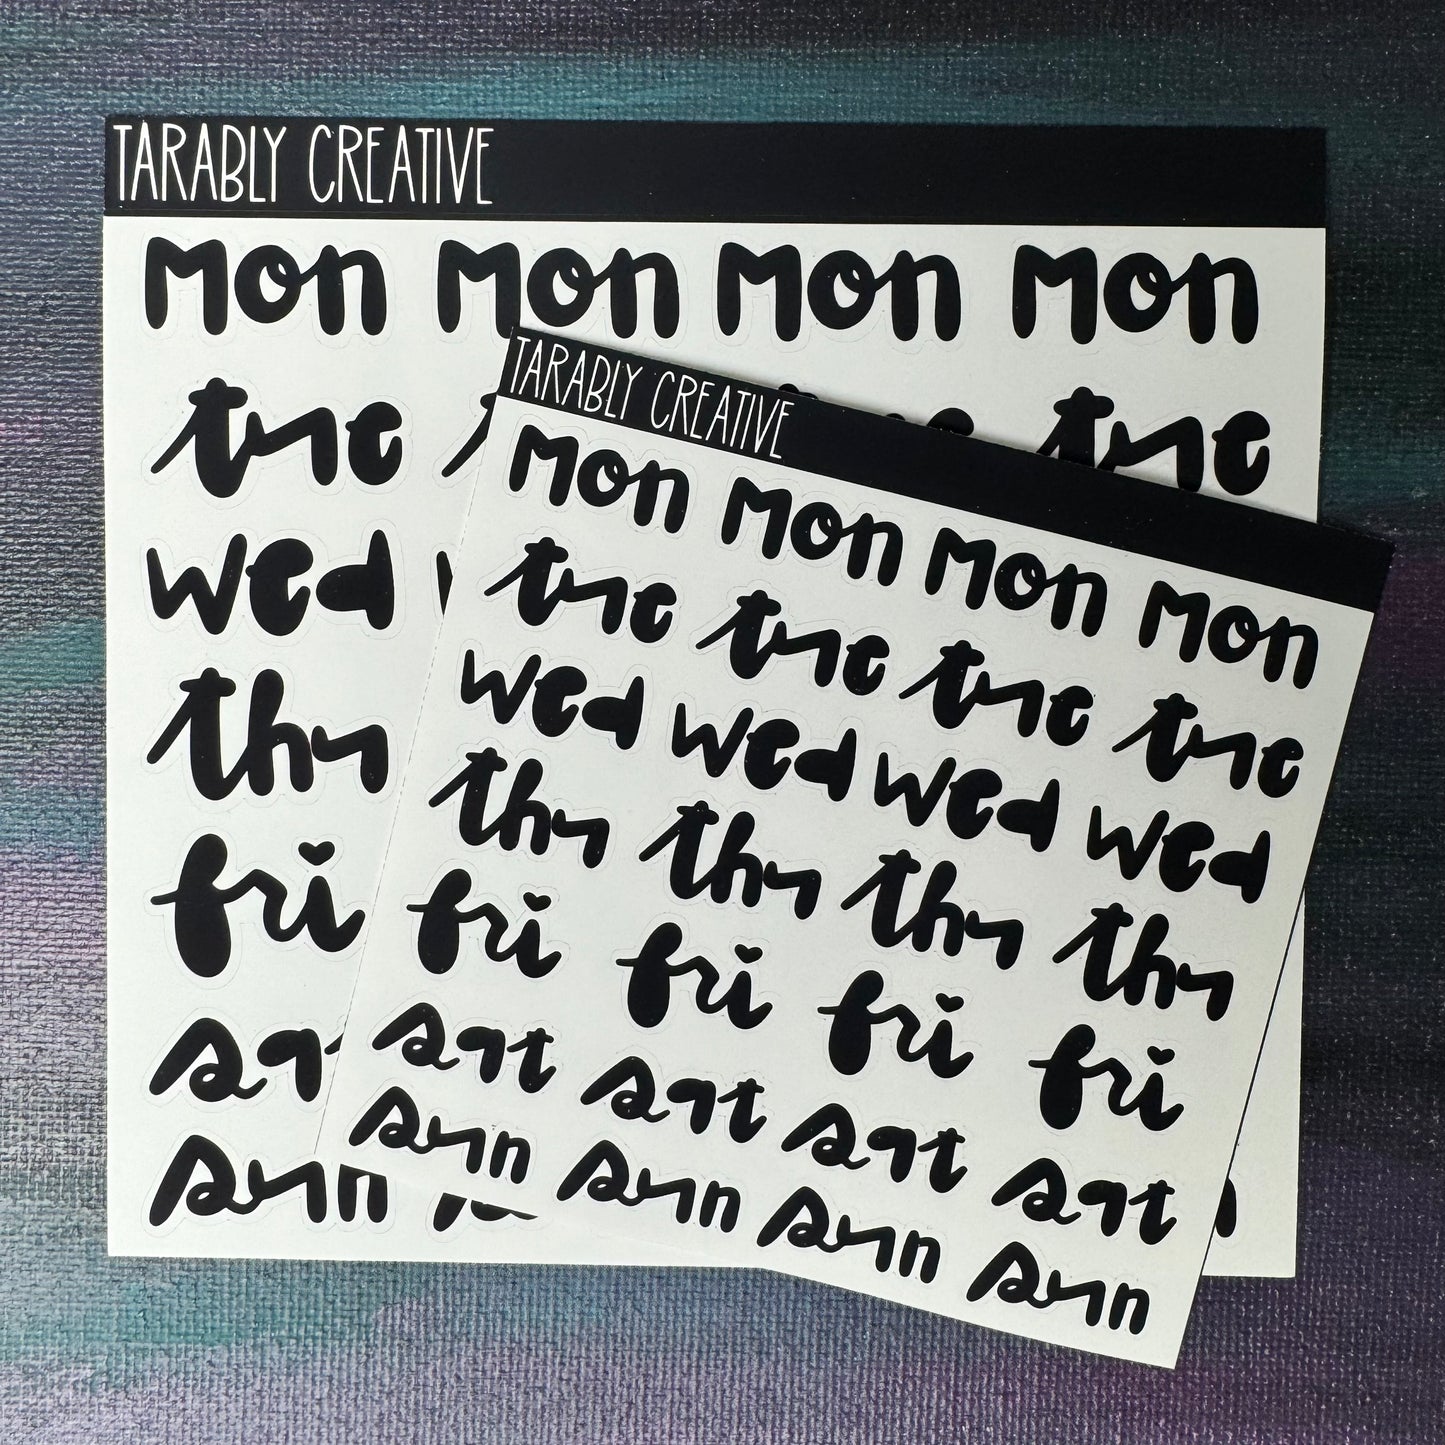 TARABLY CREATIVE
mon mon mon mon
tue tue
wed
thu
fri
sun
TARABLY CREATIVE
mon mon mon mon
tue tue tue tue
wed wed wed wed
thu thu thu thu
fri fri fri fri
sat sat sat sat
sun sun sun sun